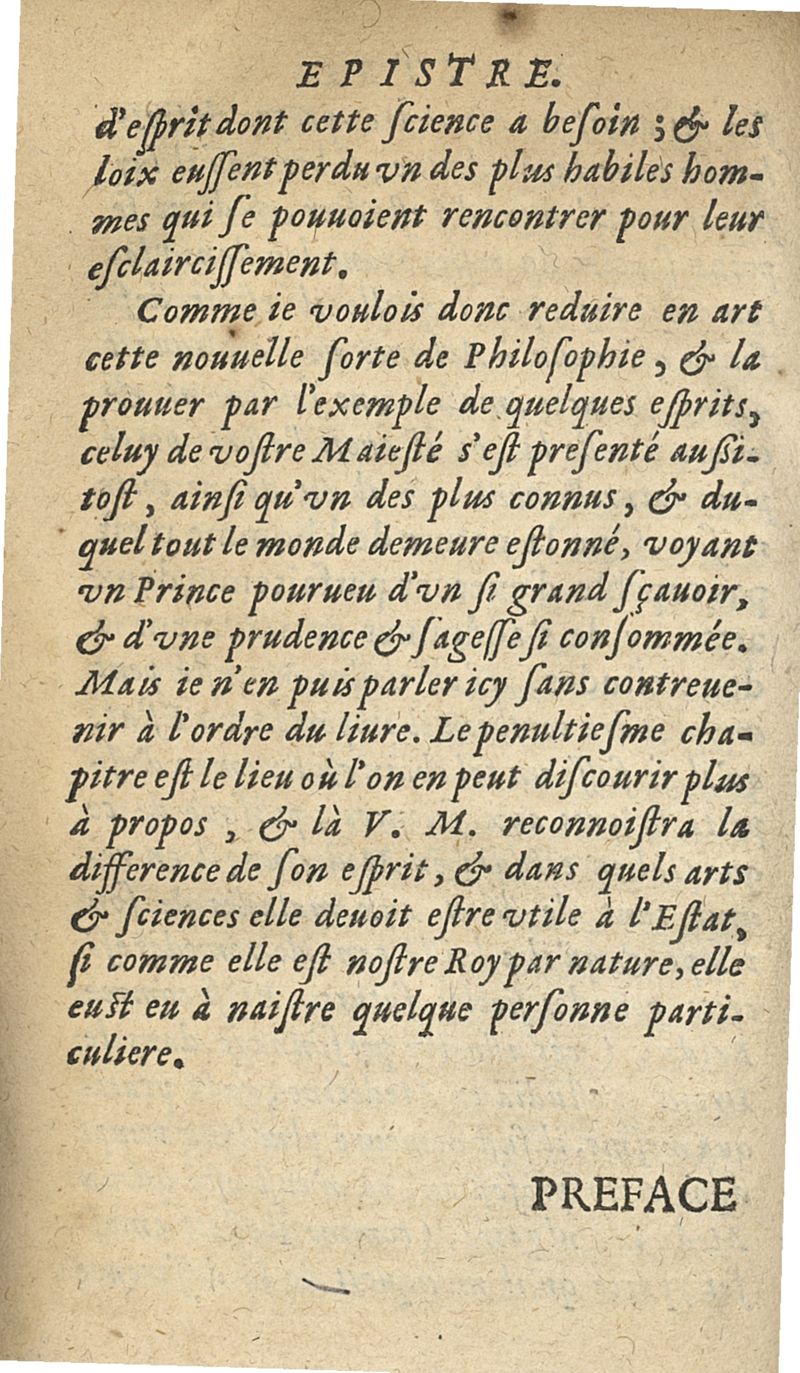 EPISTRE.
d'eſprit dont cette ſcience a beſoin ; & les
loix euſſent perdu vn des plus habiles hom-
mes qui ſe pouuoient rencontrer pour leur
eſclairciſſement.
Comme ie voulois donc reduire en art
cette nouuelle ſorte de Philoſophie, & la
prouuer par l'exemple de quelques eſprits,
celuy de voſtre Maieſté s'eſt preſenté auſſi-
toſt, ainſi qu'vn des plus connus, & du-
quel tout le monde demeure eſtonné, voyant
vn Prince pourueu d'vn ſi grand ſçauoir,
& d'vne prudence & ſageſſe ſi conſommée.
Mais ie n'en puis parler icy ſans contreue-
nir à l'ordre du liure. Le penultieſme cha-
pitre eſt le lieu où l'on en peut diſcourir plus
à propos, & là V. M. reconnoiſtra la
difference de ſon eſprit, & dans quels arts
& ſciences elle deuoit eſtre vtile à l'Eſtat,
ſi comme elle eſt noſtre Roy par nature, elle
euſt eu à naiſtre quelque perſonne parti-
culiere.
PREFACE